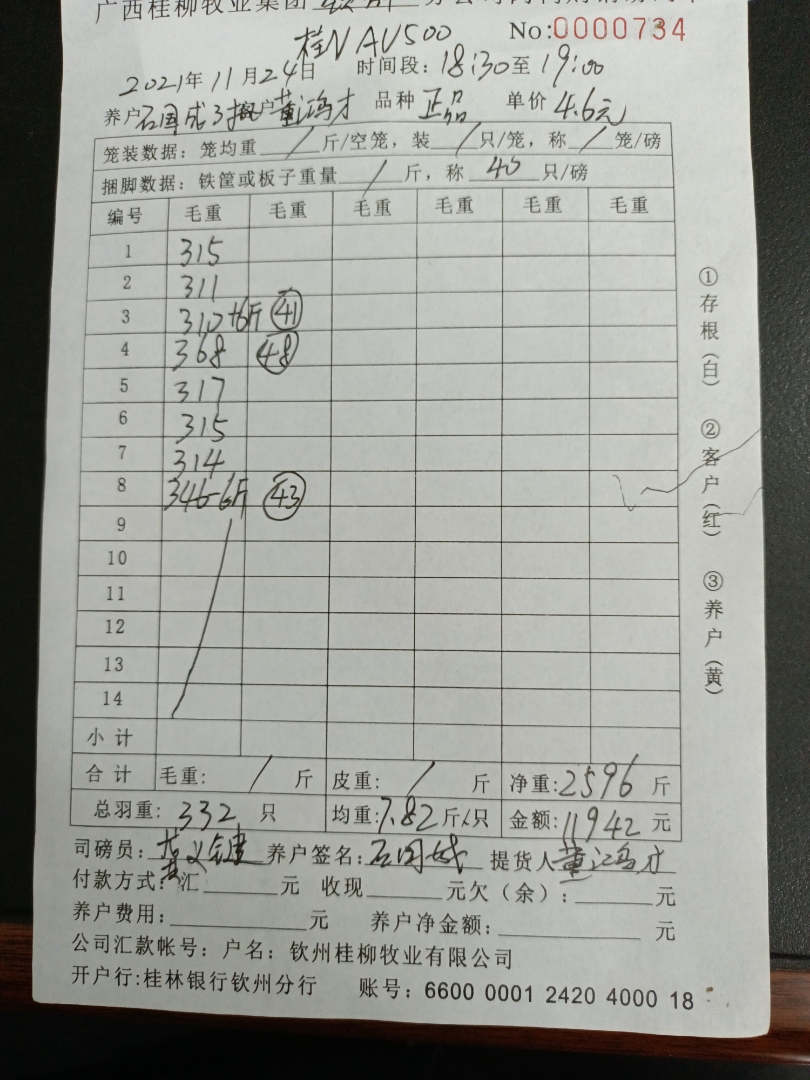 广西桂柳牧业集团 分公司
桂N AU500 No:0000734
2021年11月24日 时间段:18:30至19:00
养户石国成 户董鸿才 品种正品 单价4.6元
笼装数据:笼均重/斤/空笼,装/只/笼,称/笼/磅
捆脚数据:铁筐或板子重量/斤,称40只/磅
编号 毛重 毛重 毛重 毛重 毛重 毛重
1 315
2 311
3 310+6斤 41
4 368 48
5 317
6 315
7 314
8 346-6斤 43
9
10
11
12
13
14
小计
合计 毛重:/斤 皮重:/斤 净重:2596斤
总羽重:332只 均重:7.82斤/只 金额:11942元
司磅员: 养户签名:石国成 提货人董鸿才
付款方式:汇 元 收现 元欠(余): 元
养户费用: 元 养户净金额: 元
公司汇款帐号:户名:钦州桂柳牧业有限公司
开户行:桂林银行钦州分行 账号:6600 0001 2420 4000 18
①存根(白) ②客户(红) ③养户(黄)